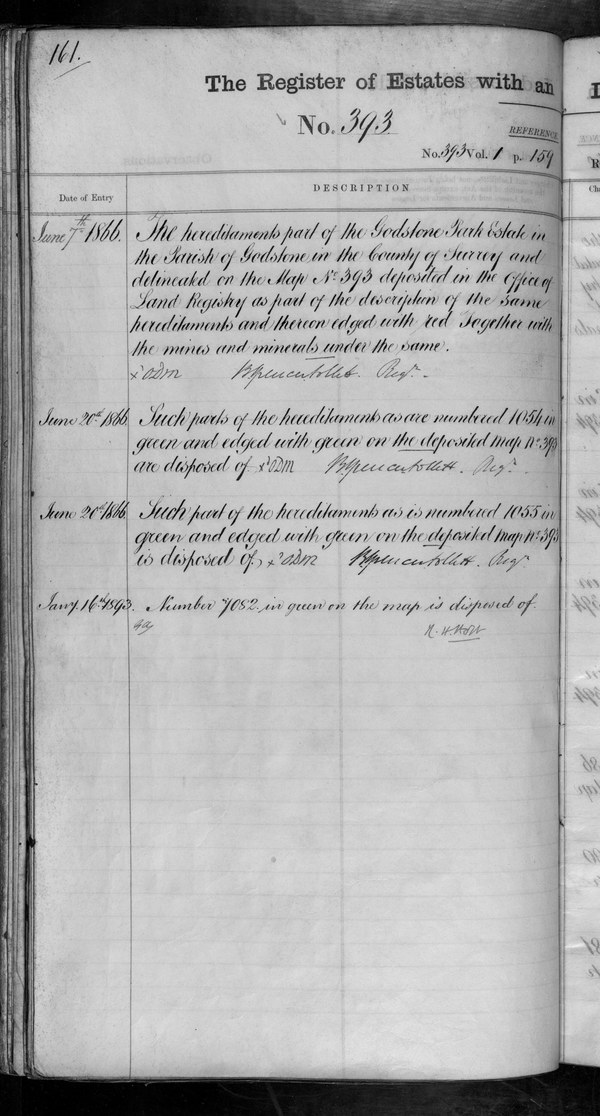 161.
The Register of Estates with an
No. 393
REFERENCE
No. 393 Vol. 1 p. 159
Date of Entry
DESCRIPTION
June 7th 1866. The hereditaments part of the Godstone Park Estate in
the Parish of Godstone in the County of Surrey and
delineated on the Map No. 393 deposited in the Office of
Land Registry as part of the description of the same
hereditaments and thereon edged with red Together with
the mines and minerals under the same.
Regr.
June 20th 1866. Such parts of the hereditaments as are numbered 1054 in
green and edged with green on the deposited map No. 393
are disposed of Regr.
June 20th 1866. Such part of the hereditaments as is numbered 1055 in
green and edged with green on the deposited map No. 393
is disposed of. Regr.
Jany. 16th 1893. Number 7082 in green on the map is disposed of.